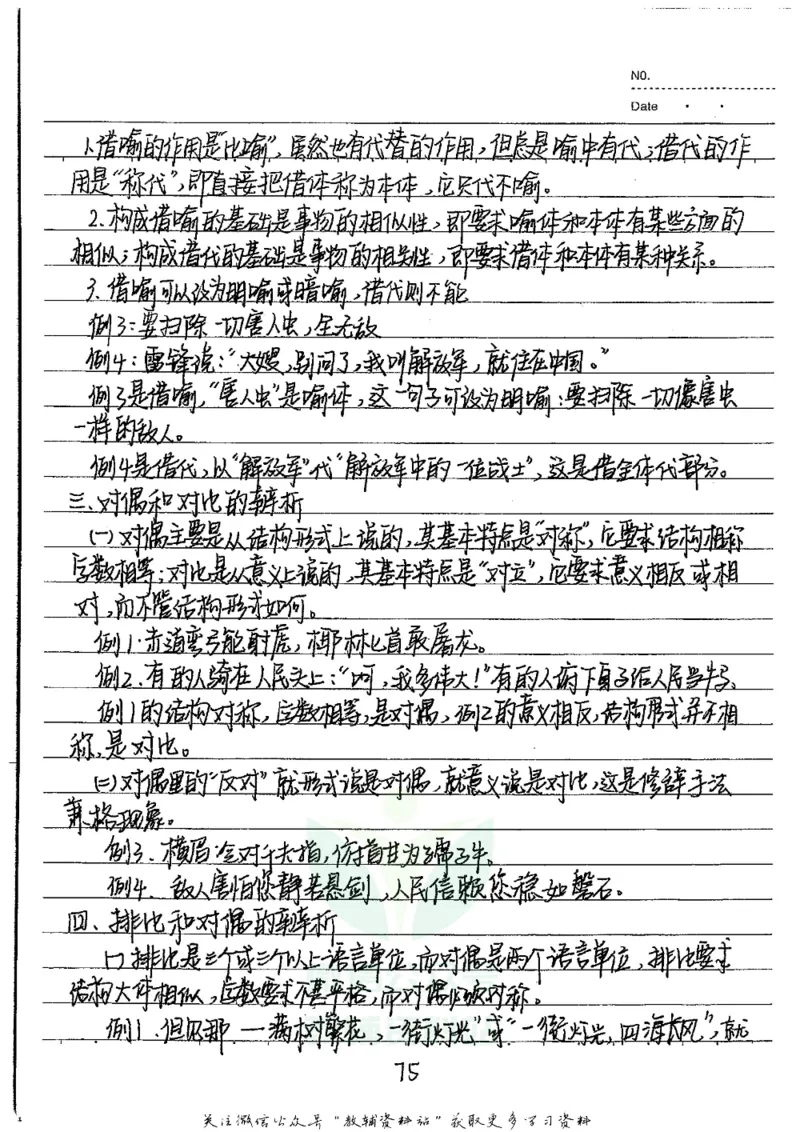 NO.
Date
1.借喻的作用是"比喻",虽然也有代替的作用,但总是喻中有代;借代的作
用是"称代",即直接把借体称为本体,它只代不喻。
2.构成借喻的基础是事物的相似性,即要求喻体和本体有某些方面的
相似;构成借代的基础是事物的相关性,即要求借体和本体有某种关系。
3.借喻可以改为明喻或暗喻,借代则不能
例3:要扫除一切害人虫,全无敌
例4:雷锋说:"大嫂,别问了,我叫解放军,就住在中国。"
例3是借喻,"害人虫"是喻体,这一句子可改为明喻:要扫除一切像害虫
一样的敌人。
例4是借代,以"解放军"代"解放军中的一位战士",这是借全体代部分。
三.对偶和对比的辨析
(一)对偶主要是从结构形式上说的,其基本特点是"对称",它要求结构相称
字数相等;对比是从意义上说的,其基本特点是"对立",它要求意义相反或相
对,而不管结构形式如何。
例1.赤道弯弓能射虎,椰林匕首敢屠龙。
例2.有的人骑在人民头上:"呵,我多伟大!"有的人俯下身子给人民当牛马、
例1的结构对称,字数相等,是对偶,例2的意义相反,结构形式并不相
称,是对比。
(二)对偶里的"反对"就形式说是对偶,就意义说是对比,这是修辞手法
兼格现象。
例3.横眉冷对千夫指,俯首甘为孺子牛。
例4.敌人害怕您静若悬剑,人民信赖您稳如磐石。
四、排比和对偶的辨析
(一)排比是三个或三个以上语言单位,而对偶是两个语言单位,排比要求
结构大体相似,字数要求不甚严格,而对偶必须对称。
例1.但见那一满树繁花,一街灯光"或"一街灯光,四海长风",就
75
关注微信公众号"教辅资料站"获取更多学习资料